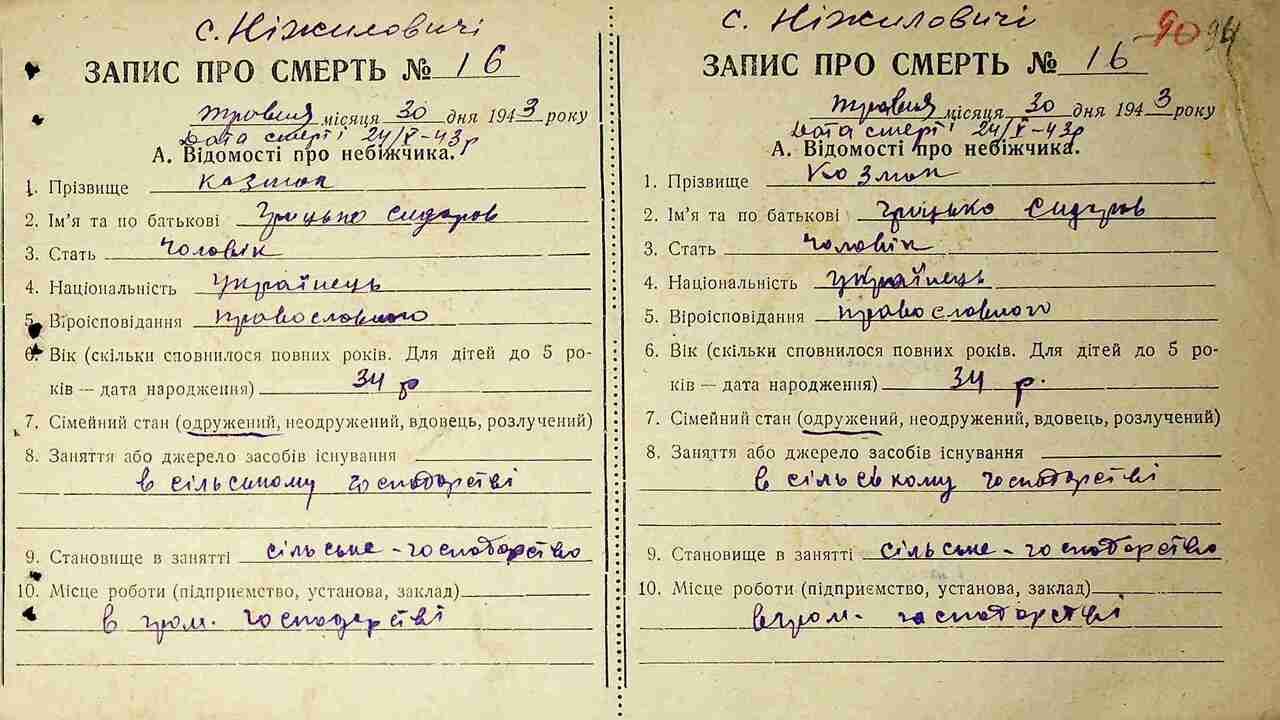 с. Ніжиловичі
ЗАПИС ПРО СМЕРТЬ № 16
травня місяця 30 дня 1943 року
Дата смерті 24/V-43р
А. Відомості про небіжчика.
1. Прізвище
2. Ім'я та по батькові Грицько Сидоров
3. Стать чоловік
4. Національність Українець
5. Віроісповідання православного
6. Вік (скільки сповнилося повних років. Для дітей до 5 ро-
ків — дата народження) 34 р
7. Сімейний стан (одружений, неодружений, вдовець, розлучений)
8. Заняття або джерело засобів існування
в сільському господарстві
9. Становище в занятті сільське-господарство
10. Місце роботи (підприємство, установа, заклад)
в гром. господарстві
с. Ніжиловичі
90 94
ЗАПИС ПРО СМЕРТЬ № 16
травня місяця 30 дня 1943 року
Дата смерті 24/V-43р
А. Відомості про небіжчика.
1. Прізвище
2. Ім'я та по батькові Грицько Сидоров
3. Стать чоловік
4. Національність українець
5. Віроісповідання православного
6. Вік (скільки сповнилося повних років. Для дітей до 5 ро-
ків — дата народження) 34 р.
7. Сімейний стан (одружений, неодружений, вдовець, розлучений)
8. Заняття або джерело засобів існування
в сільському господарстві
9. Становище в занятті сільське-господарство
10. Місце роботи (підприємство, установа, заклад)
в гром. господарстві